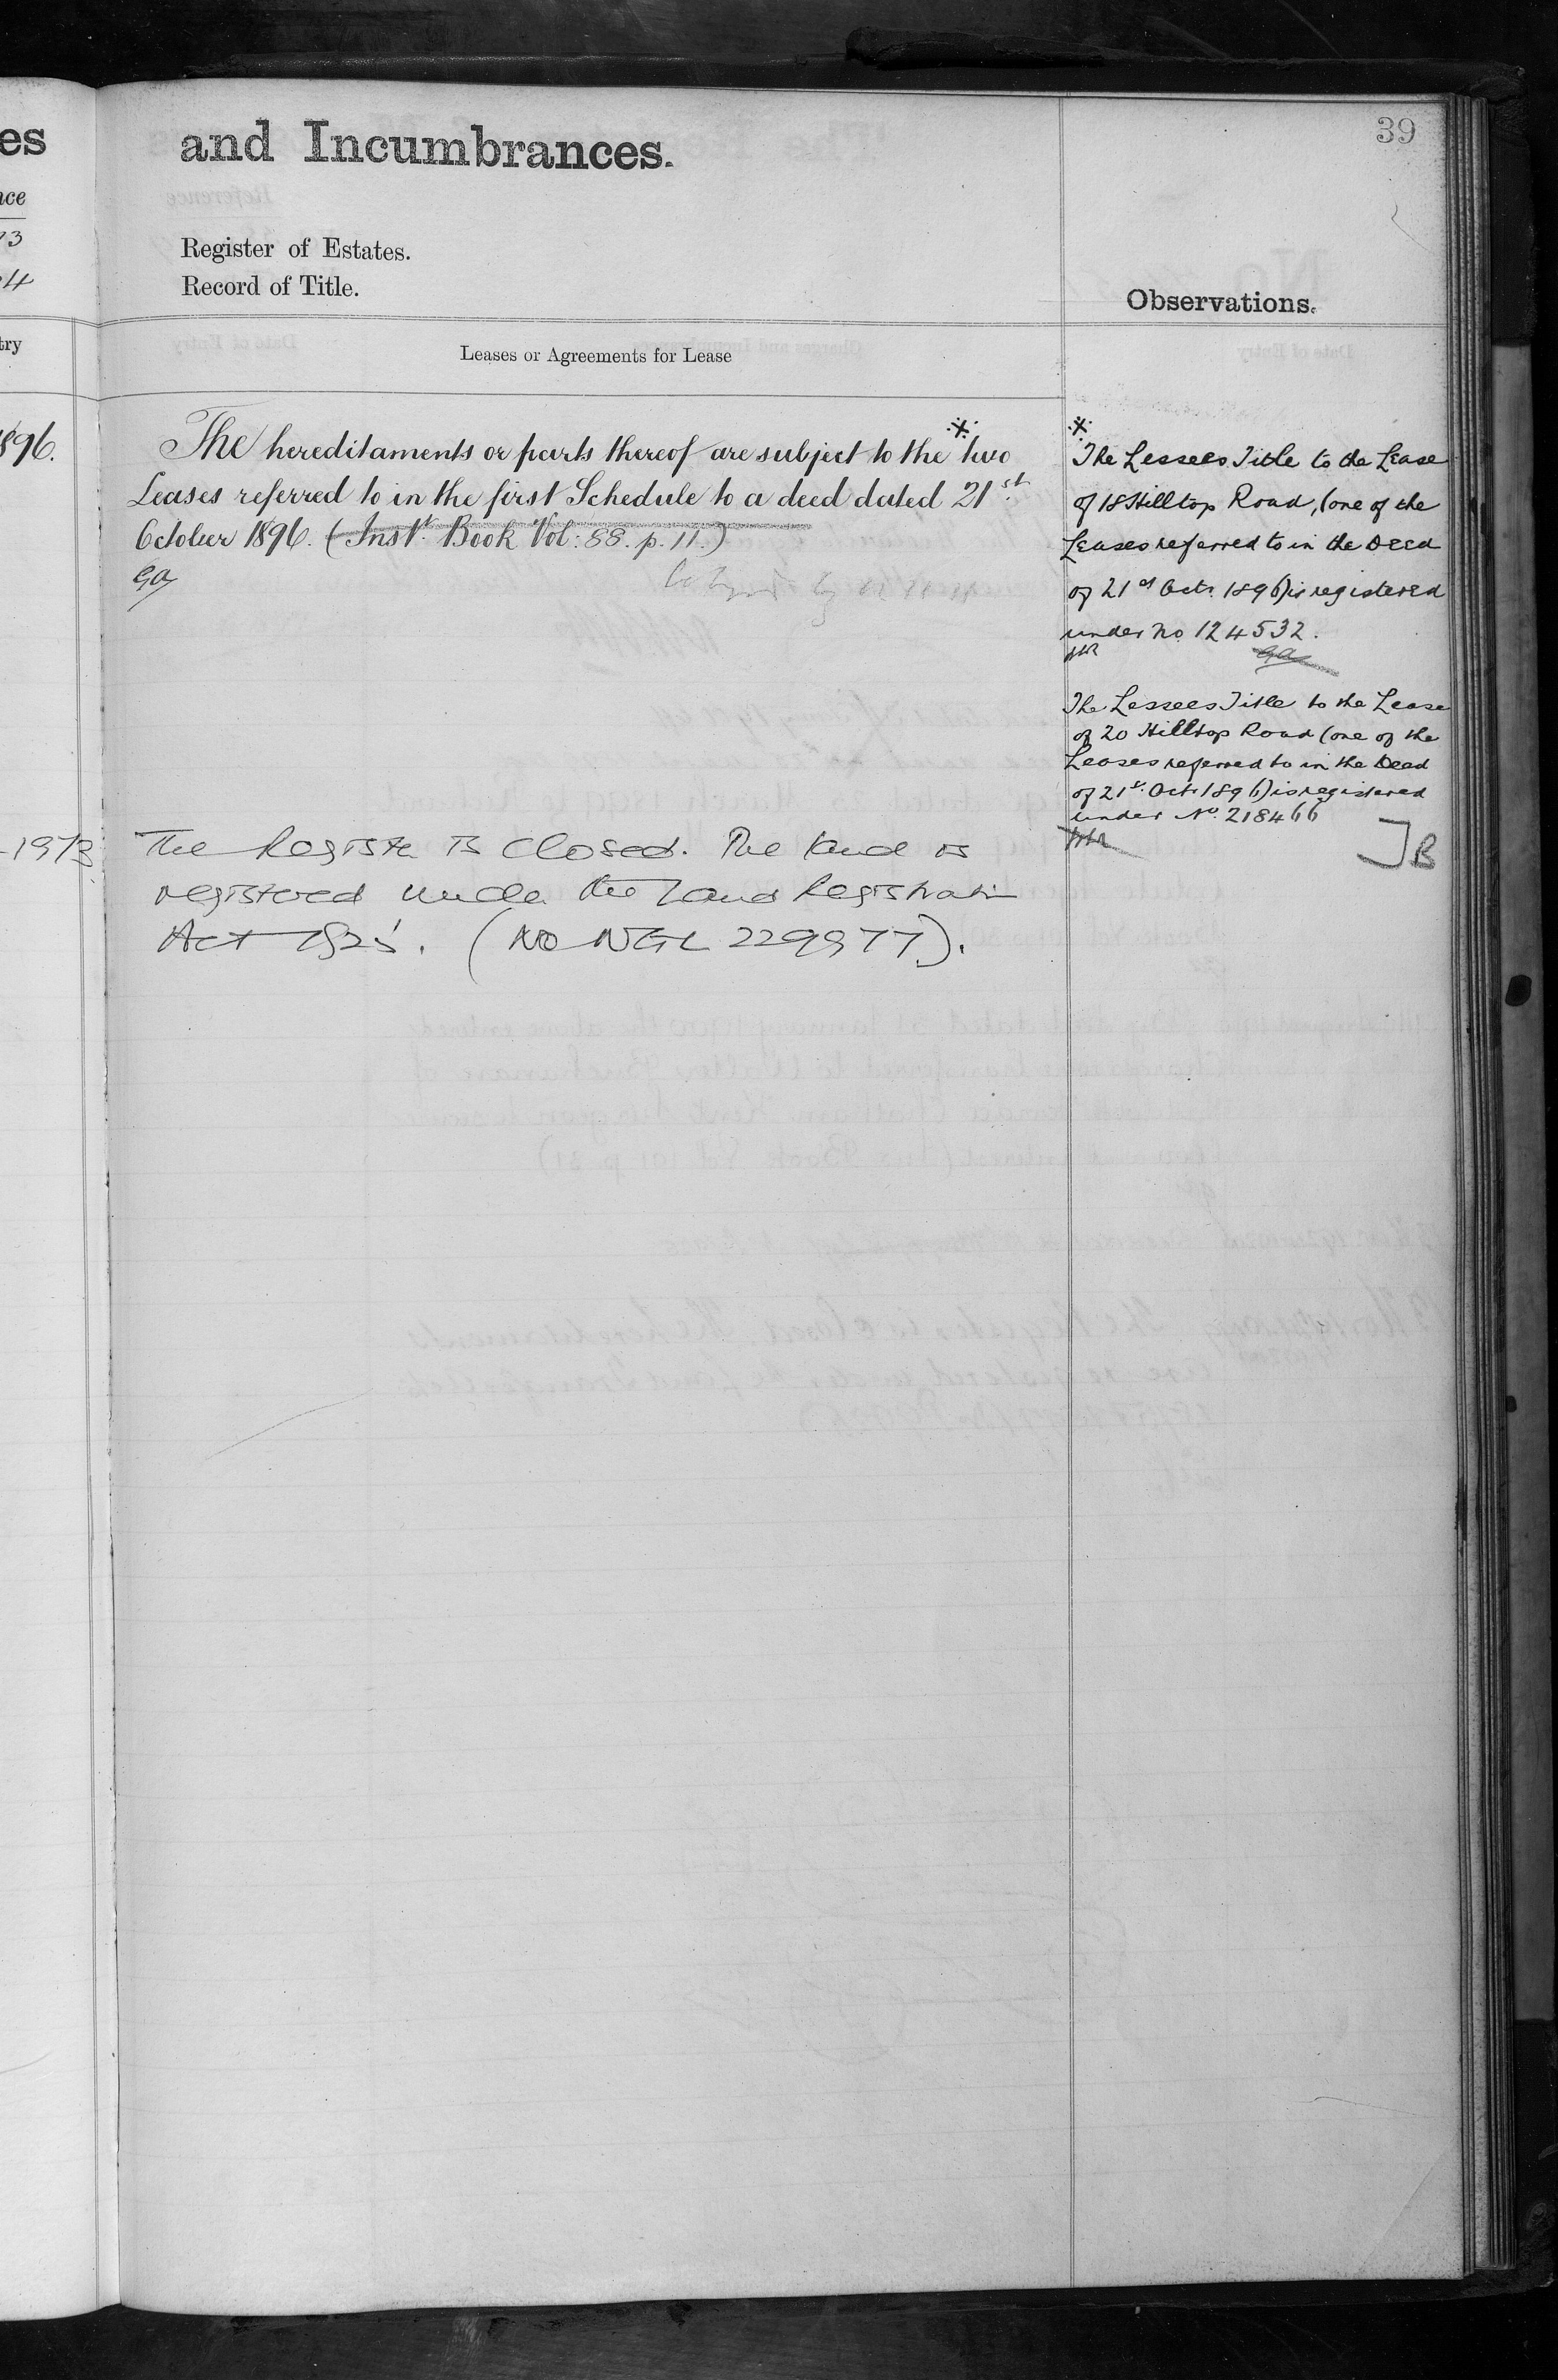 es
and Incumbrances.
39
nce
73
Register of Estates.
24
Record of Title.
Observations.
try
Leases or Agreements for Lease
1896.
The hereditaments or parts thereof are subject to the * two
Leases referred to in the first Schedule to a deed dated 21st
October 1896. (Inst. Book Vol: 88. p. 11.)
GA
*
The Lessees Title to the Lease
of 18 Hilltop Road, (one of the
Leases referred to in the Deed
of 21st Oct. 1896) is registered
under No. 124532.
GA
The Lessees Title to the Lease
of 20 Hilltop Road (one of the
Leases referred to in the Deed
of 21st Oct. 1896) is registered
under No. 218466
B
1973
The Register is closed. The land is
registered under the Land Registration
Act 1925. (No NGL 229977).